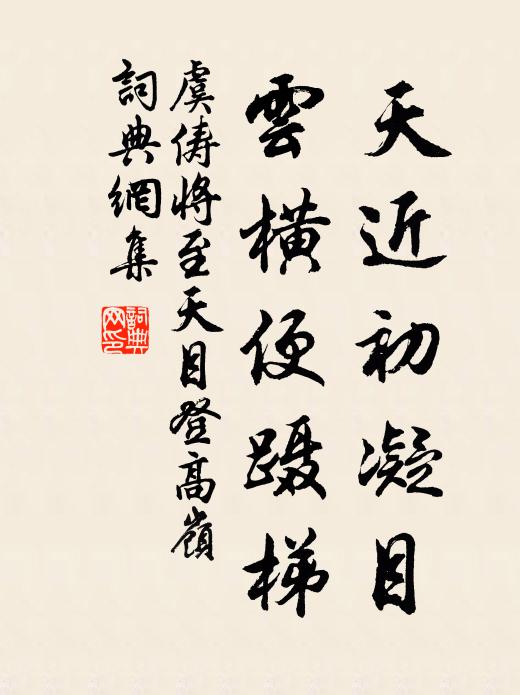 天近初凝目
雲橫便蹑梯
虞俦將至天目登高嶺
詞典網集
詞典网印